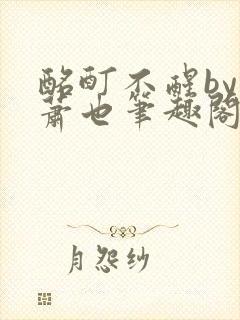 酩酊不醒by
萧也笔趣阁
月怨纱